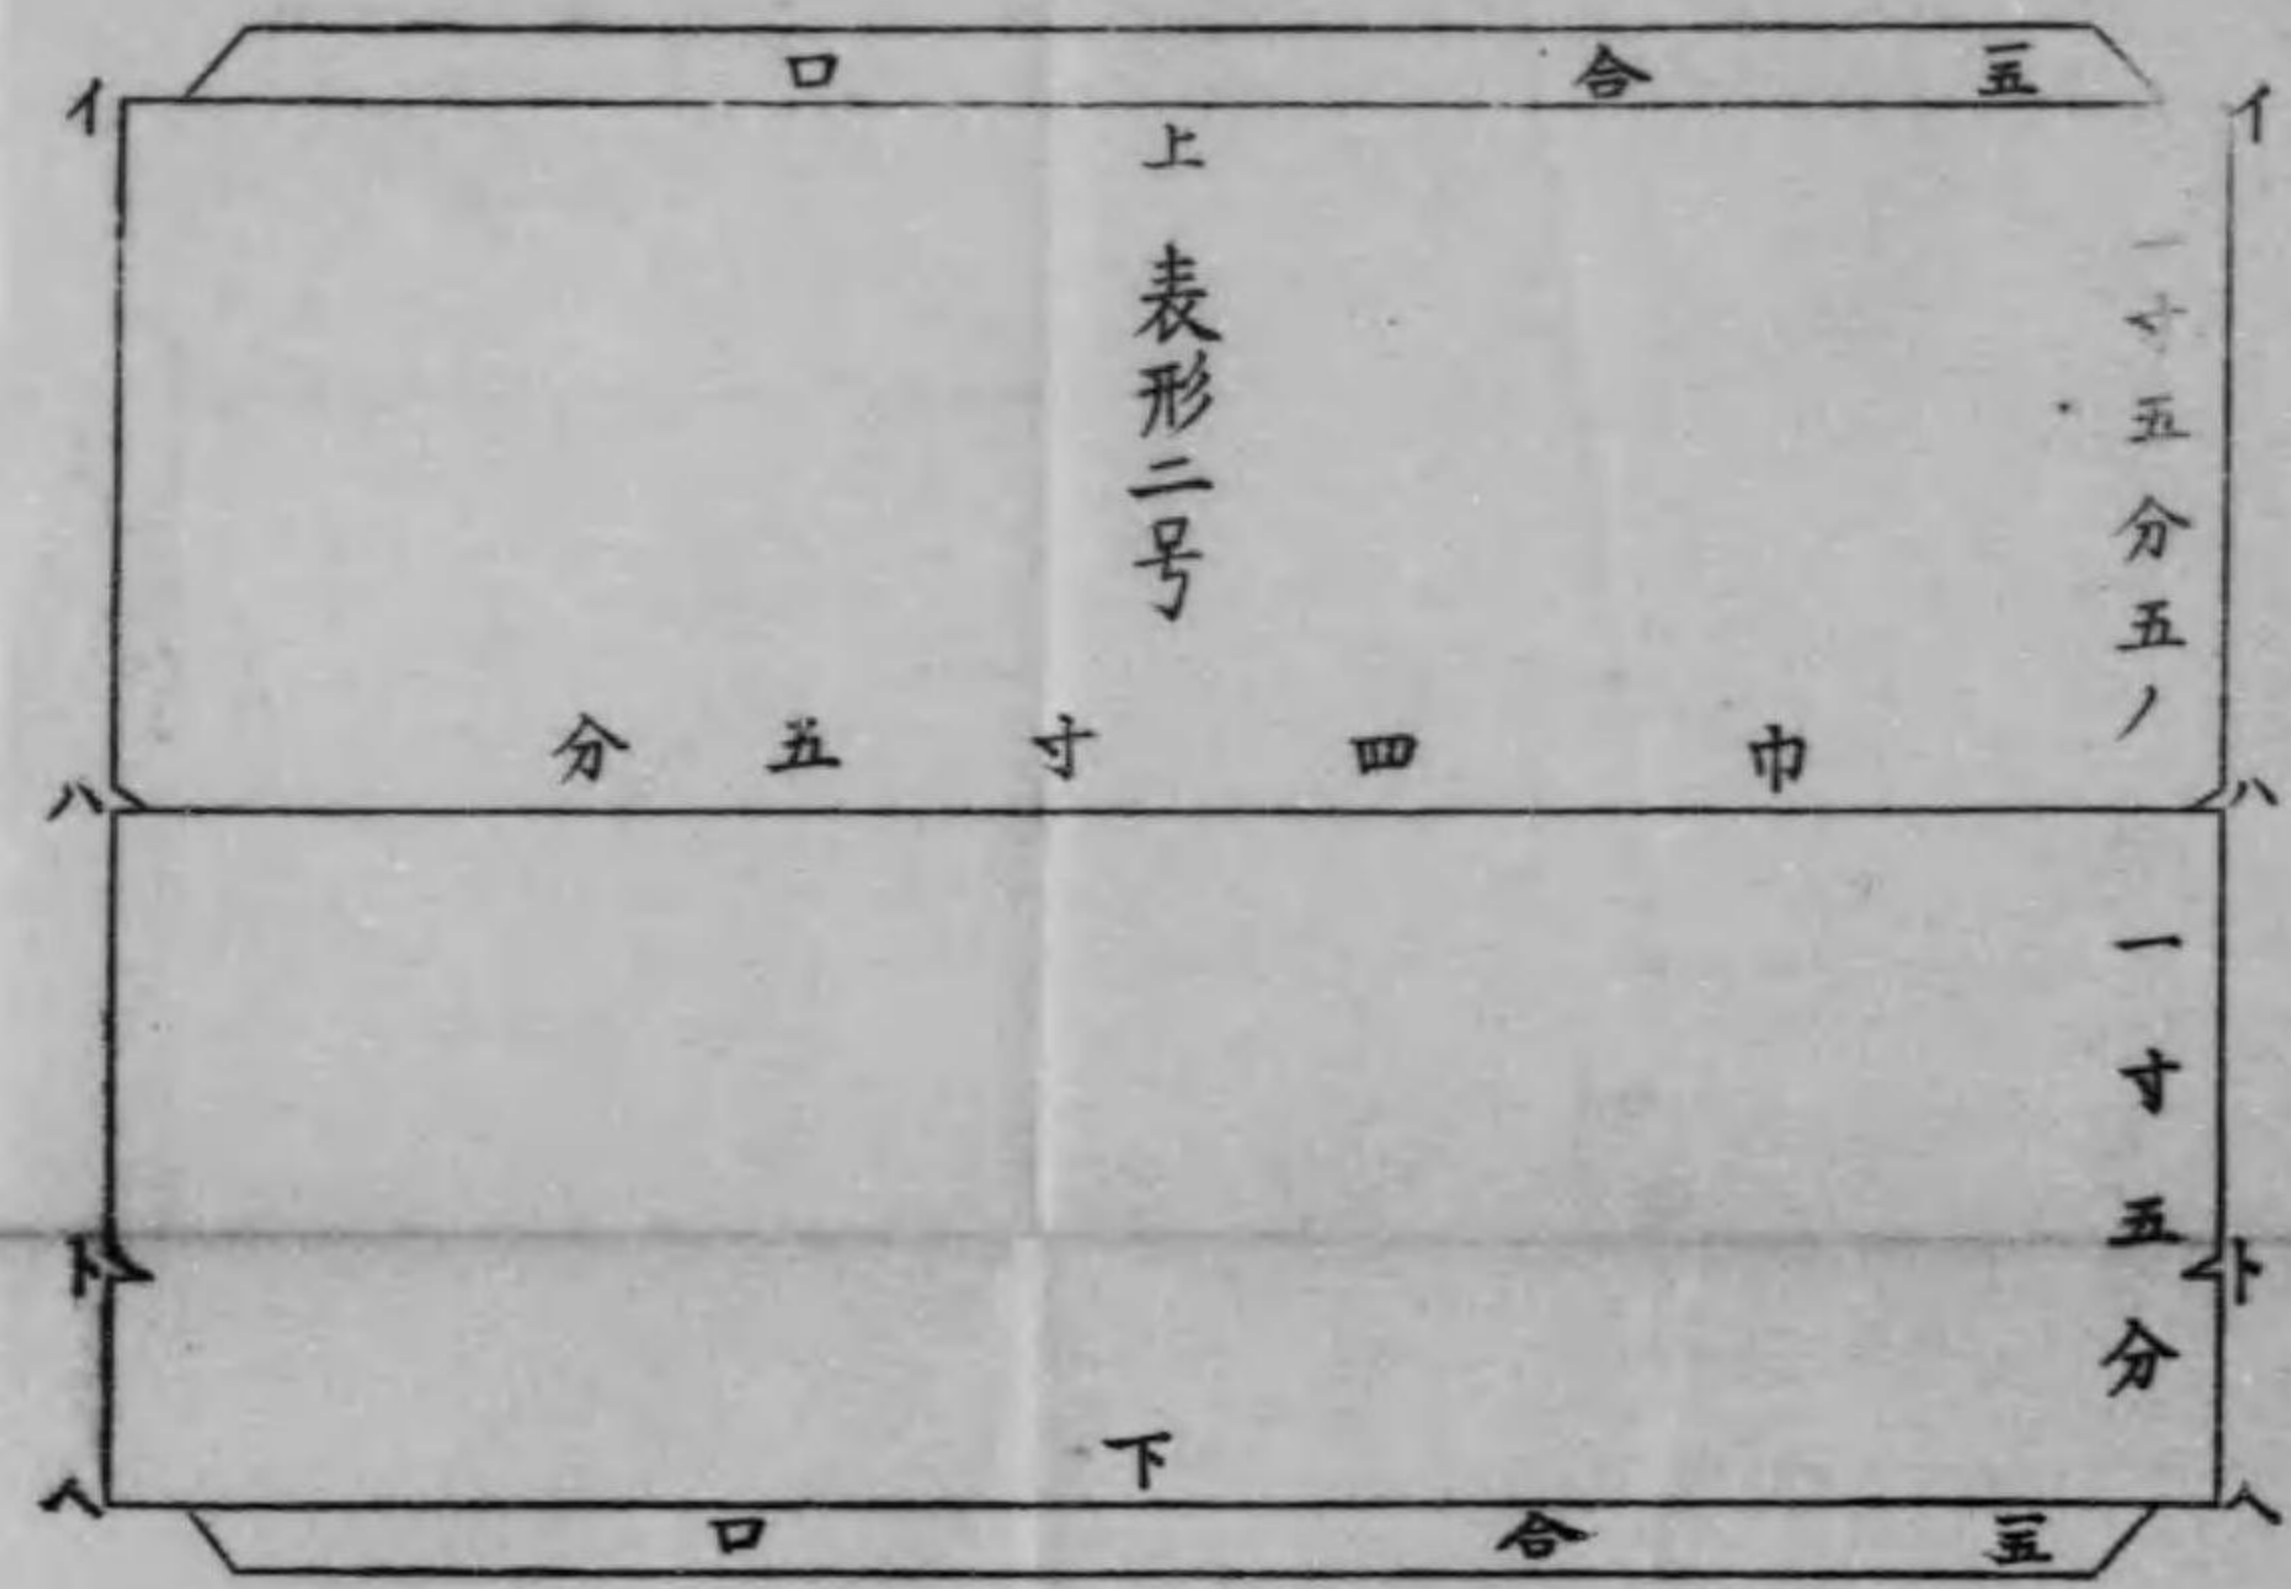 一五合口
イ
イ
上
表形二号
一寸五分五ノ
巾四寸五分
ハ
ハ
一寸五分
ト
ト
下
ヘ
ヘ
一五合口